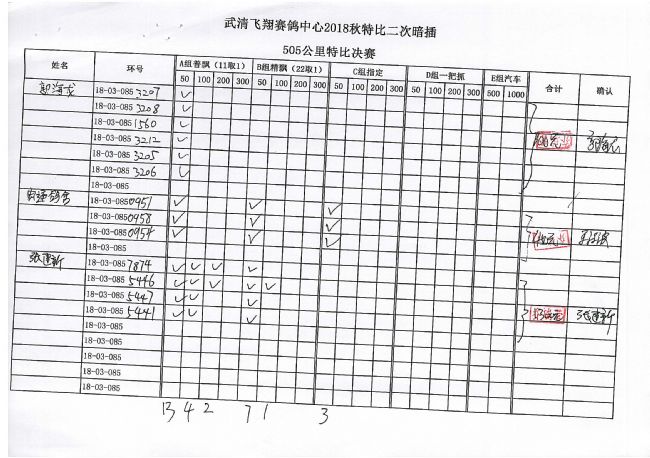 武清飞翔赛鸽中心2018秋特比二次暗插
505公里特比决赛
姓名 环号 A组普飘（11取1） B组精飘（22取1） C组指定 D组一把抓 E组汽车 合计 确认
50 100 200 300 50 100 200 300 50 100 200 300 50 100 200 300 500 1000
18-03-085 3207 ✓
18-03-085 3208 ✓
18-03-085 1560 ✓
18-03-085 3212 ✓
18-03-085 3205 ✓
18-03-085 3206 ✓
18-03-085
18-03-085 0951 ✓ ✓ ✓
18-03-085 0958 ✓ ✓ ✓
18-03-085 0954 ✓ ✓ ✓
18-03-085
张建新 18-03-085 7874 ✓ ✓ ✓ ✓
18-03-085 5446 ✓ ✓ ✓ ✓ ✓
18-03-085 5447 ✓ ✓ ✓
18-03-085 5441 ✓ ✓ ✓ 张建新
18-03-085
18-03-085
18-03-085
18-03-085
18-03-085
13 4 2 7 1 3